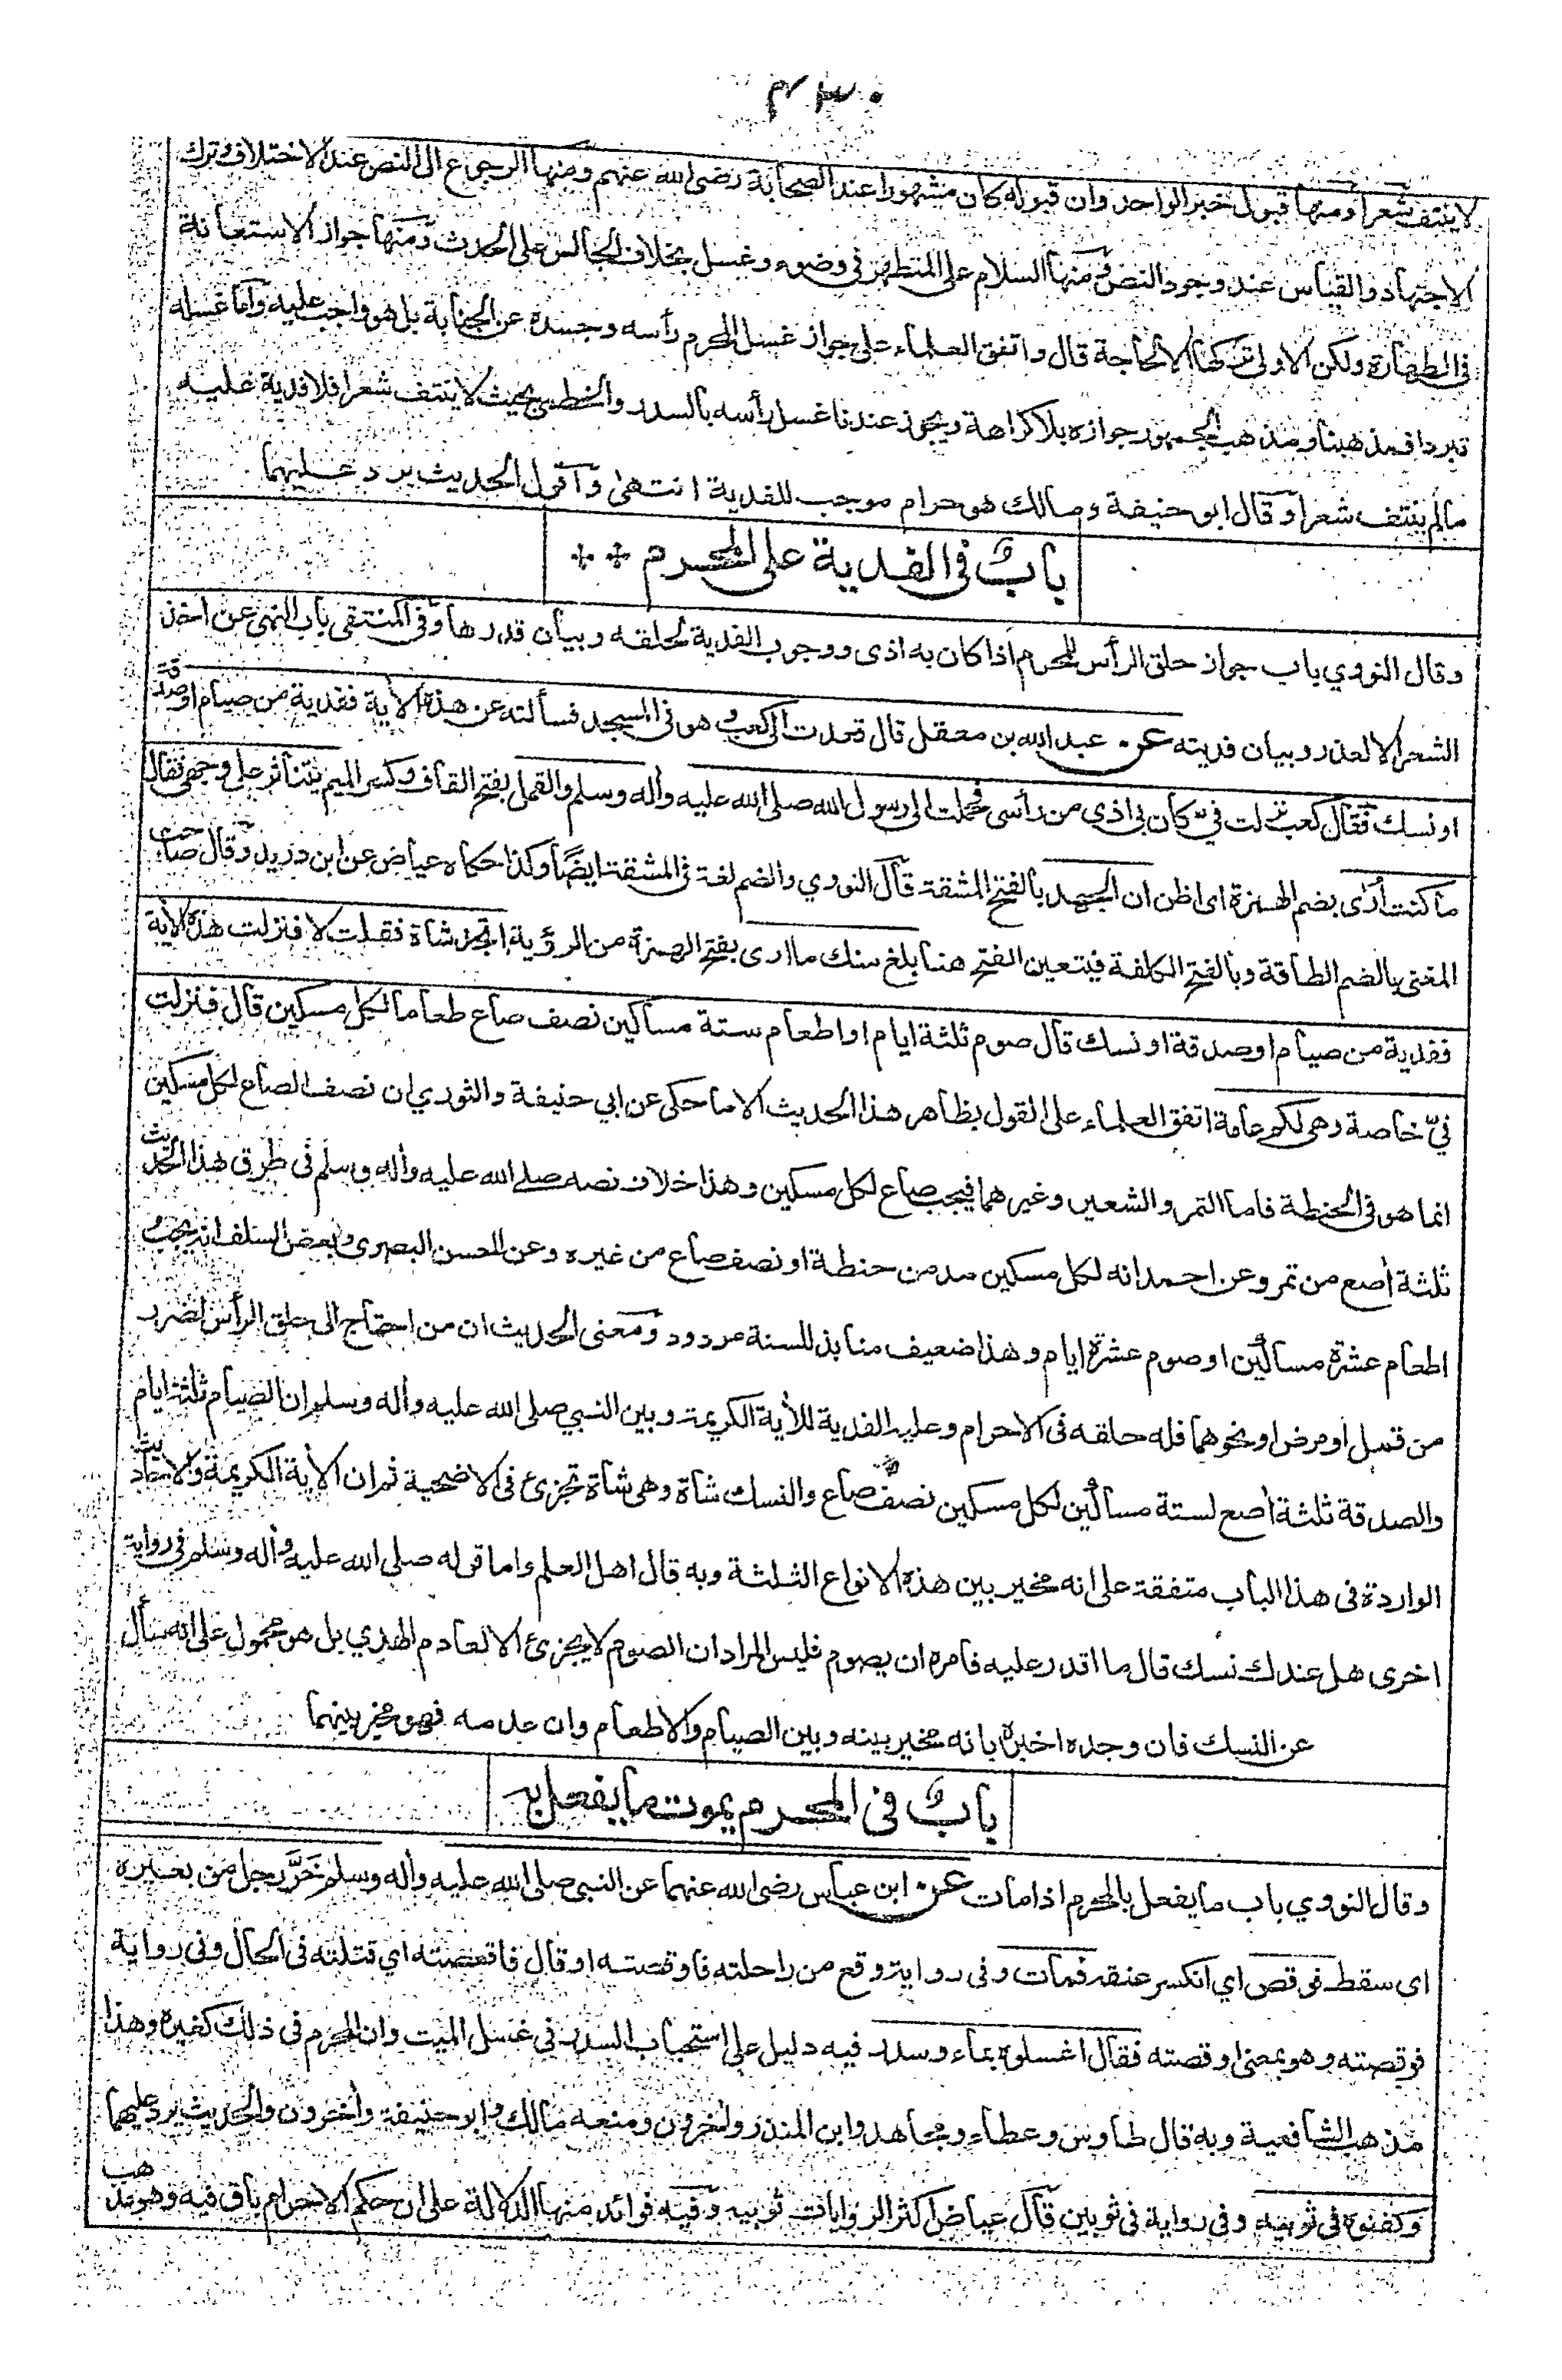 ۴۳۰
لا ينتف شعرا ومنها قبول خبر الواحد وان قبوله كان مشهورا عند الصحابة رضى الله عنهم ومنها الرجوع الى النص عند الاختلاف وترك
الاجتهاد والقياس عند وجود النص ومنها السلام على المتطهر في وضوء وغسل بخلاف الجالس على الحدث ومنها جواز الاستعانة
فى الطهارة ولكن الاولى تركها الا لحاجة قال واتفق العلماء على جواز غسل المحرم رأسه وجسده عن الجنابة بل هو واجب عليه وأما غسله
تبردا فمذهبنا ومذهب الجمهور جوازه بلا كراهة ويجوز عندنا غسل رأسه بالسدر والخطمى بحيث لا ينتف شعرا فلا فدية عليه
مالم ينتف شعرا وقال ابو حنيفة ومالك هو حرام موجب للفدية انتهى وأقول الحديث يرد عليهما
باب في الفدية على المحرم
وقال النووي باب جواز حلق الرأس للمحرم اذا كان به اذى ووجوب الفدية لحلقه وبيان قدرها وفى المنتقى باب النهى عن اخذ
الشعر الا لعذر وبيان فديته عن عبد الله بن معقل قال قعدت الى كعب وهو فى المسجد فسألته عن هذه الأية ففدية من صيام او صدقة
او نسك فقال كعب نزلت فيّ كان بى اذى من رأسى فحملت الى رسول الله صلى الله عليه وأله وسلم والقمل بفتح القاف وكسر الميم يتناثر على وجهى فقال
ما كنت أرى بضم الهمزة اى اظن ان الجهد بالفتح المشقة قال النووي والضم لغة فى المشقة ايضا وكذا حكاه عياض عن ابن دريد وقال صاحب
المغنى بالضم الطاقة وبالفتح الكلفة فيتعين الفتح هنا بلغ منك ما ارى بفتح الهمزة من الرؤية اتجد شاة فقلت لا فنزلت هذه الأية
ففدية من صيام او صدقة او نسك قال صوم ثلثة ايام او اطعام ستة مساكين نصف صاع طعاما لكل مسكين قال فنزلت
فيّ خاصة وهى لكم عامة اتفق العلماء على القول بظاهر هذا الحديث الا ما حكى عن ابي حنيفة والثوري ان نصف الصاع لكل مسكين
انما هو فى الحنطة فاما التمر والشعير وغيرهما فيجب صاع لكل مسكين وهذا خلاف نصه صلى الله عليه وأله وسلم فى طرق هذا الحديث
ثلثة أصع من تمر وعن احمد انه لكل مسكين مد من حنطة او نصف صاع من غيره وعن الحسن البصرى وبعض السلف انه يجب
اطعام عشرة مساكين او صوم عشرة ايام وهذا ضعيف منابذ للسنة مردود ومعنى الحديث ان من احتاج الى حلق الرأس لضرر
من قمل او مرض او نحوهما فله حلقه فى الاحرام وعليه الفدية للأية الكريمة وبين النبي صلى الله عليه وأله وسلم ان الصيام ثلثة ايام
والصدقة ثلثة أصع لستة مساكين لكل مسكين نصف صاع والنسك شاة وهى شاة تجزئ فى الاضحية ثم ان الأية الكريمة والاحاديث
الواردة فى هذا الباب متفقة على انه مخير بين هذه الانواع الثلثة وبه قال اهل العلم واما قوله صلى الله عليه وأله وسلم فى رواية
اخرى هل عندك نسك قال ما اقدر عليه فامره ان يصوم فليس المراد ان الصوم لا يجزئ الا لعادم الهدي بل هو محمول على انه سأل
عن النسك فان وجده اخبره بانه مخير بينه وبين الصيام والاطعام وان عدمه فهو مخير بينهما
باب فى المحرم يموت ما يفعل به
وقال النووي باب ما يفعل بالمحرم اذا مات عن ابن عباس رضى الله عنهما عن النبى صلى الله عليه وأله وسلم خرّ رجل من بعيره
اى سقط فوقص اي انكسر عنقه فمات وفى رواية وقع من راحلته فاوقصته او قال فاقعصته اي قتلته فى الحال وفى رواية
فوقصته وهو بمعنى اوقصته فقال اغسلوه بماء وسدر فيه دليل على استحباب السدر فى غسل الميت وان المحرم فى ذلك كغيره وهذا
مذهب الشافعية وبه قال طاوس وعطاء ومجاهد وابن المنذر وأخرون ومنعه مالك وابو حنيفة وأخرون والحديث يرد عليهما
وكفنوه فى ثوبيه وفى رواية فى ثوبين قال عياض اكثر الروايات ثوبيه وفيه فوائد منها الدلالة على ان حكم الاحرام باق فيه وهو مذهب